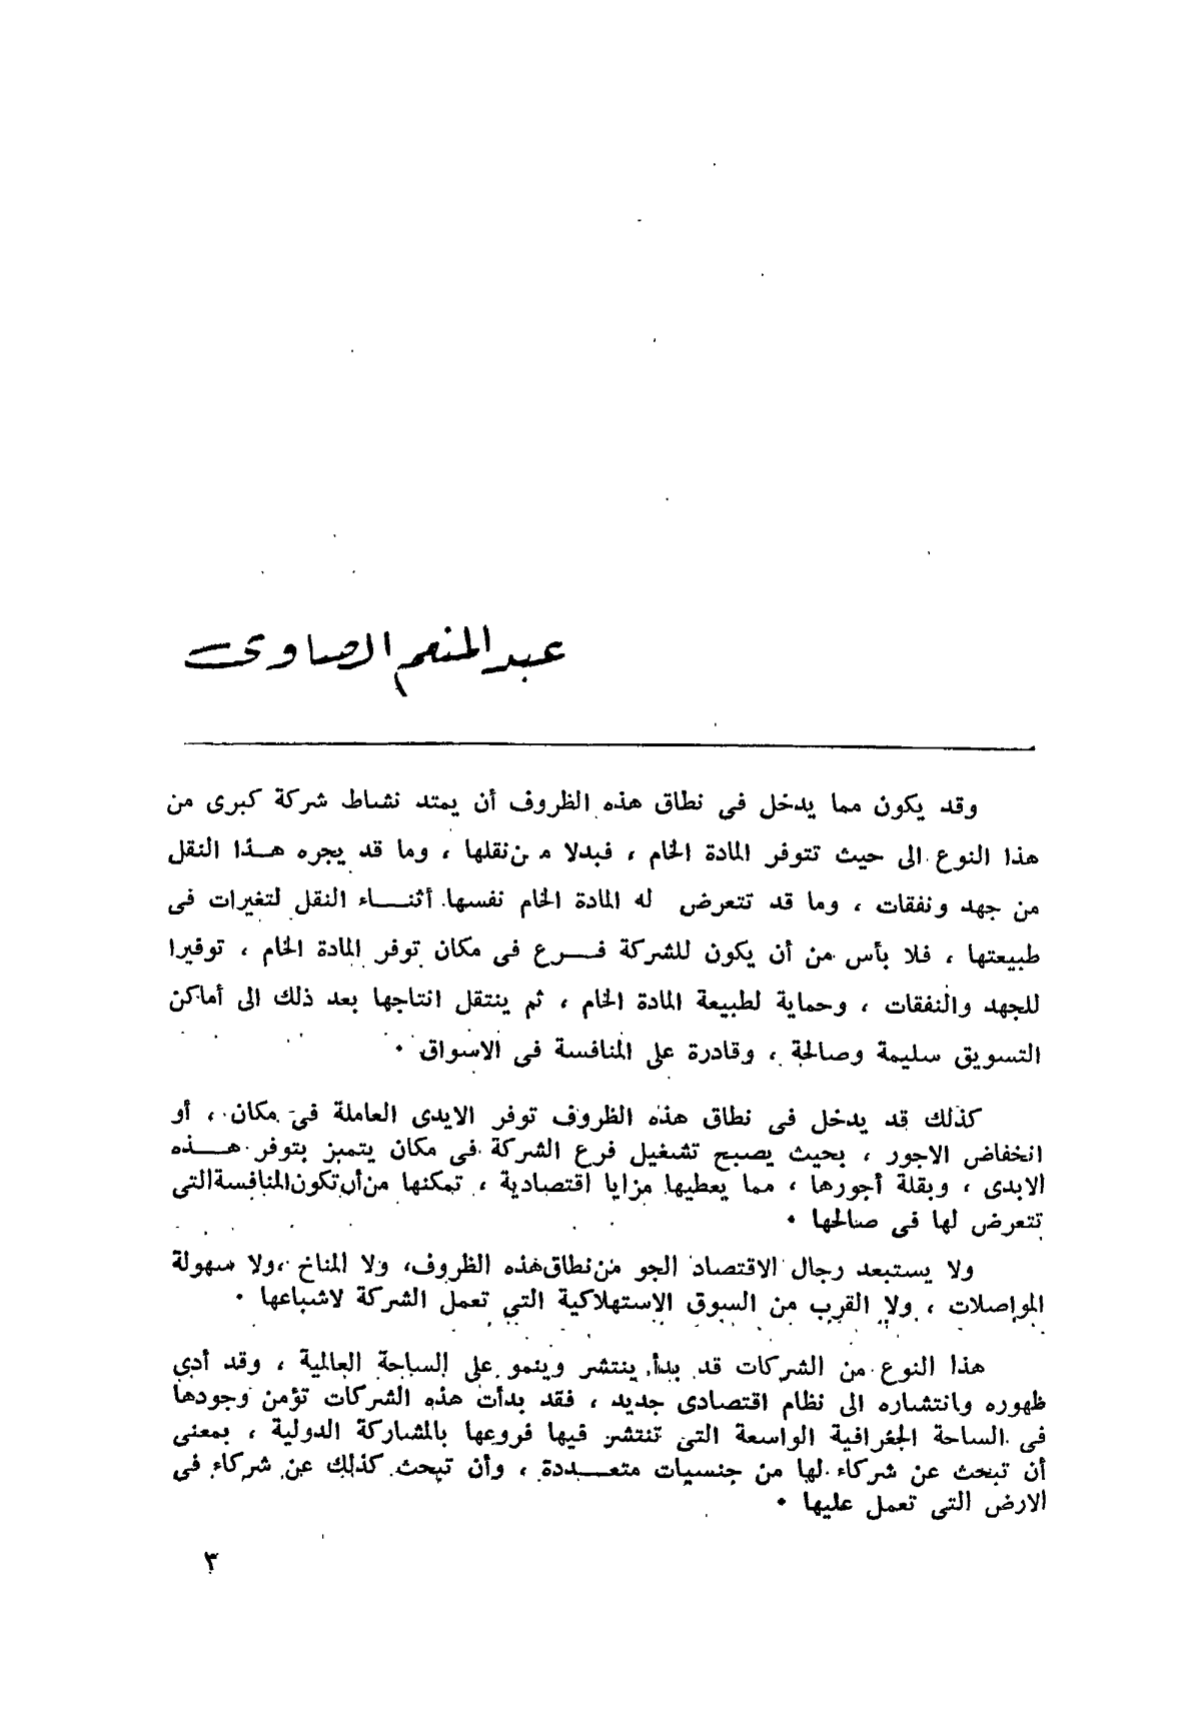 عبد المنعم الصاوى
وقد يكون مما يدخل فى نطاق هذه الظروف أن يمتد نشاط شركة كبرى من
هذا النوع الى حيث تتوفر المادة الخام ، فبدلا من نقلها ، وما قد يجره هذا النقل
من جهد ونفقات ، وما قد تتعرض له المادة الخام نفسها أثناء النقل لتغيرات فى
طبيعتها ، فلا بأس من أن يكون للشركة فرع فى مكان توفر المادة الخام ، توفيرا
للجهد والنفقات ، وحماية لطبيعة المادة الخام ، ثم ينتقل انتاجها بعد ذلك الى أماكن
التسويق سليمة وصالحة ، وقادرة على المنافسة فى الاسواق .
كذلك قد يدخل فى نطاق هذه الظروف توفر الايدى العاملة فى مكان ، أو
انخفاض الاجور ، بحيث يصبح تشغيل فرع الشركة فى مكان يتميز بتوفر هذه
الايدى ، وبقلة أجورها ، مما يعطيها مزايا اقتصادية ، تمكنها من أن تكون المنافسة التى
تتعرض لها فى صالحها .
ولا يستبعد رجال الاقتصاد الجو من نطاق هذه الظروف، ولا المناخ ،ولا سهولة
المواصلات ، ولا القرب من السوق الاستهلاكية التى تعمل الشركة لاشباعها .
هذا النوع من الشركات قد بدأ ينتشر وينمو على الساحة العالمية ، وقد أدى
ظهوره وانتشاره الى نظام اقتصادى جديد ، فقد بدأت هذه الشركات تؤمن وجودها
فى الساحة الجغرافية الواسعة التى تنتشر فيها فروعها بالمشاركة الدولية ، بمعنى
أن تبحث عن شركاء لها من جنسيات متعددة ، وأن تبحث كذلك عن شركاء فى
الارض التى تعمل عليها .
٣